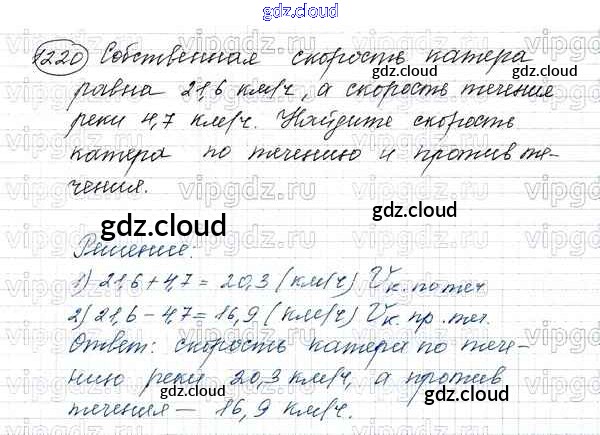 gdz.cloud
1220 Собственная скорость катера
gdz.cloud gdz.cloud
равна 21,6 км/ч, а скорость течения
реки 4,7 км/ч. Найдите скорость
катера по течению и против те-
gdz.cloud
чения.
gdz.cloud
Решение.
1) 21,6 + 4,7 = 20,3 (км/ч) Vк. по теч
2) 21,6 - 4,7 = 16,9 (км/ч) Vк. пр. теч.
gdz.cloud gdz.cloud
Ответ: скорость катера по тече-
нию реки 20,3 км/ч, а против
gdz.cloud
течения — 16,9 км/ч.